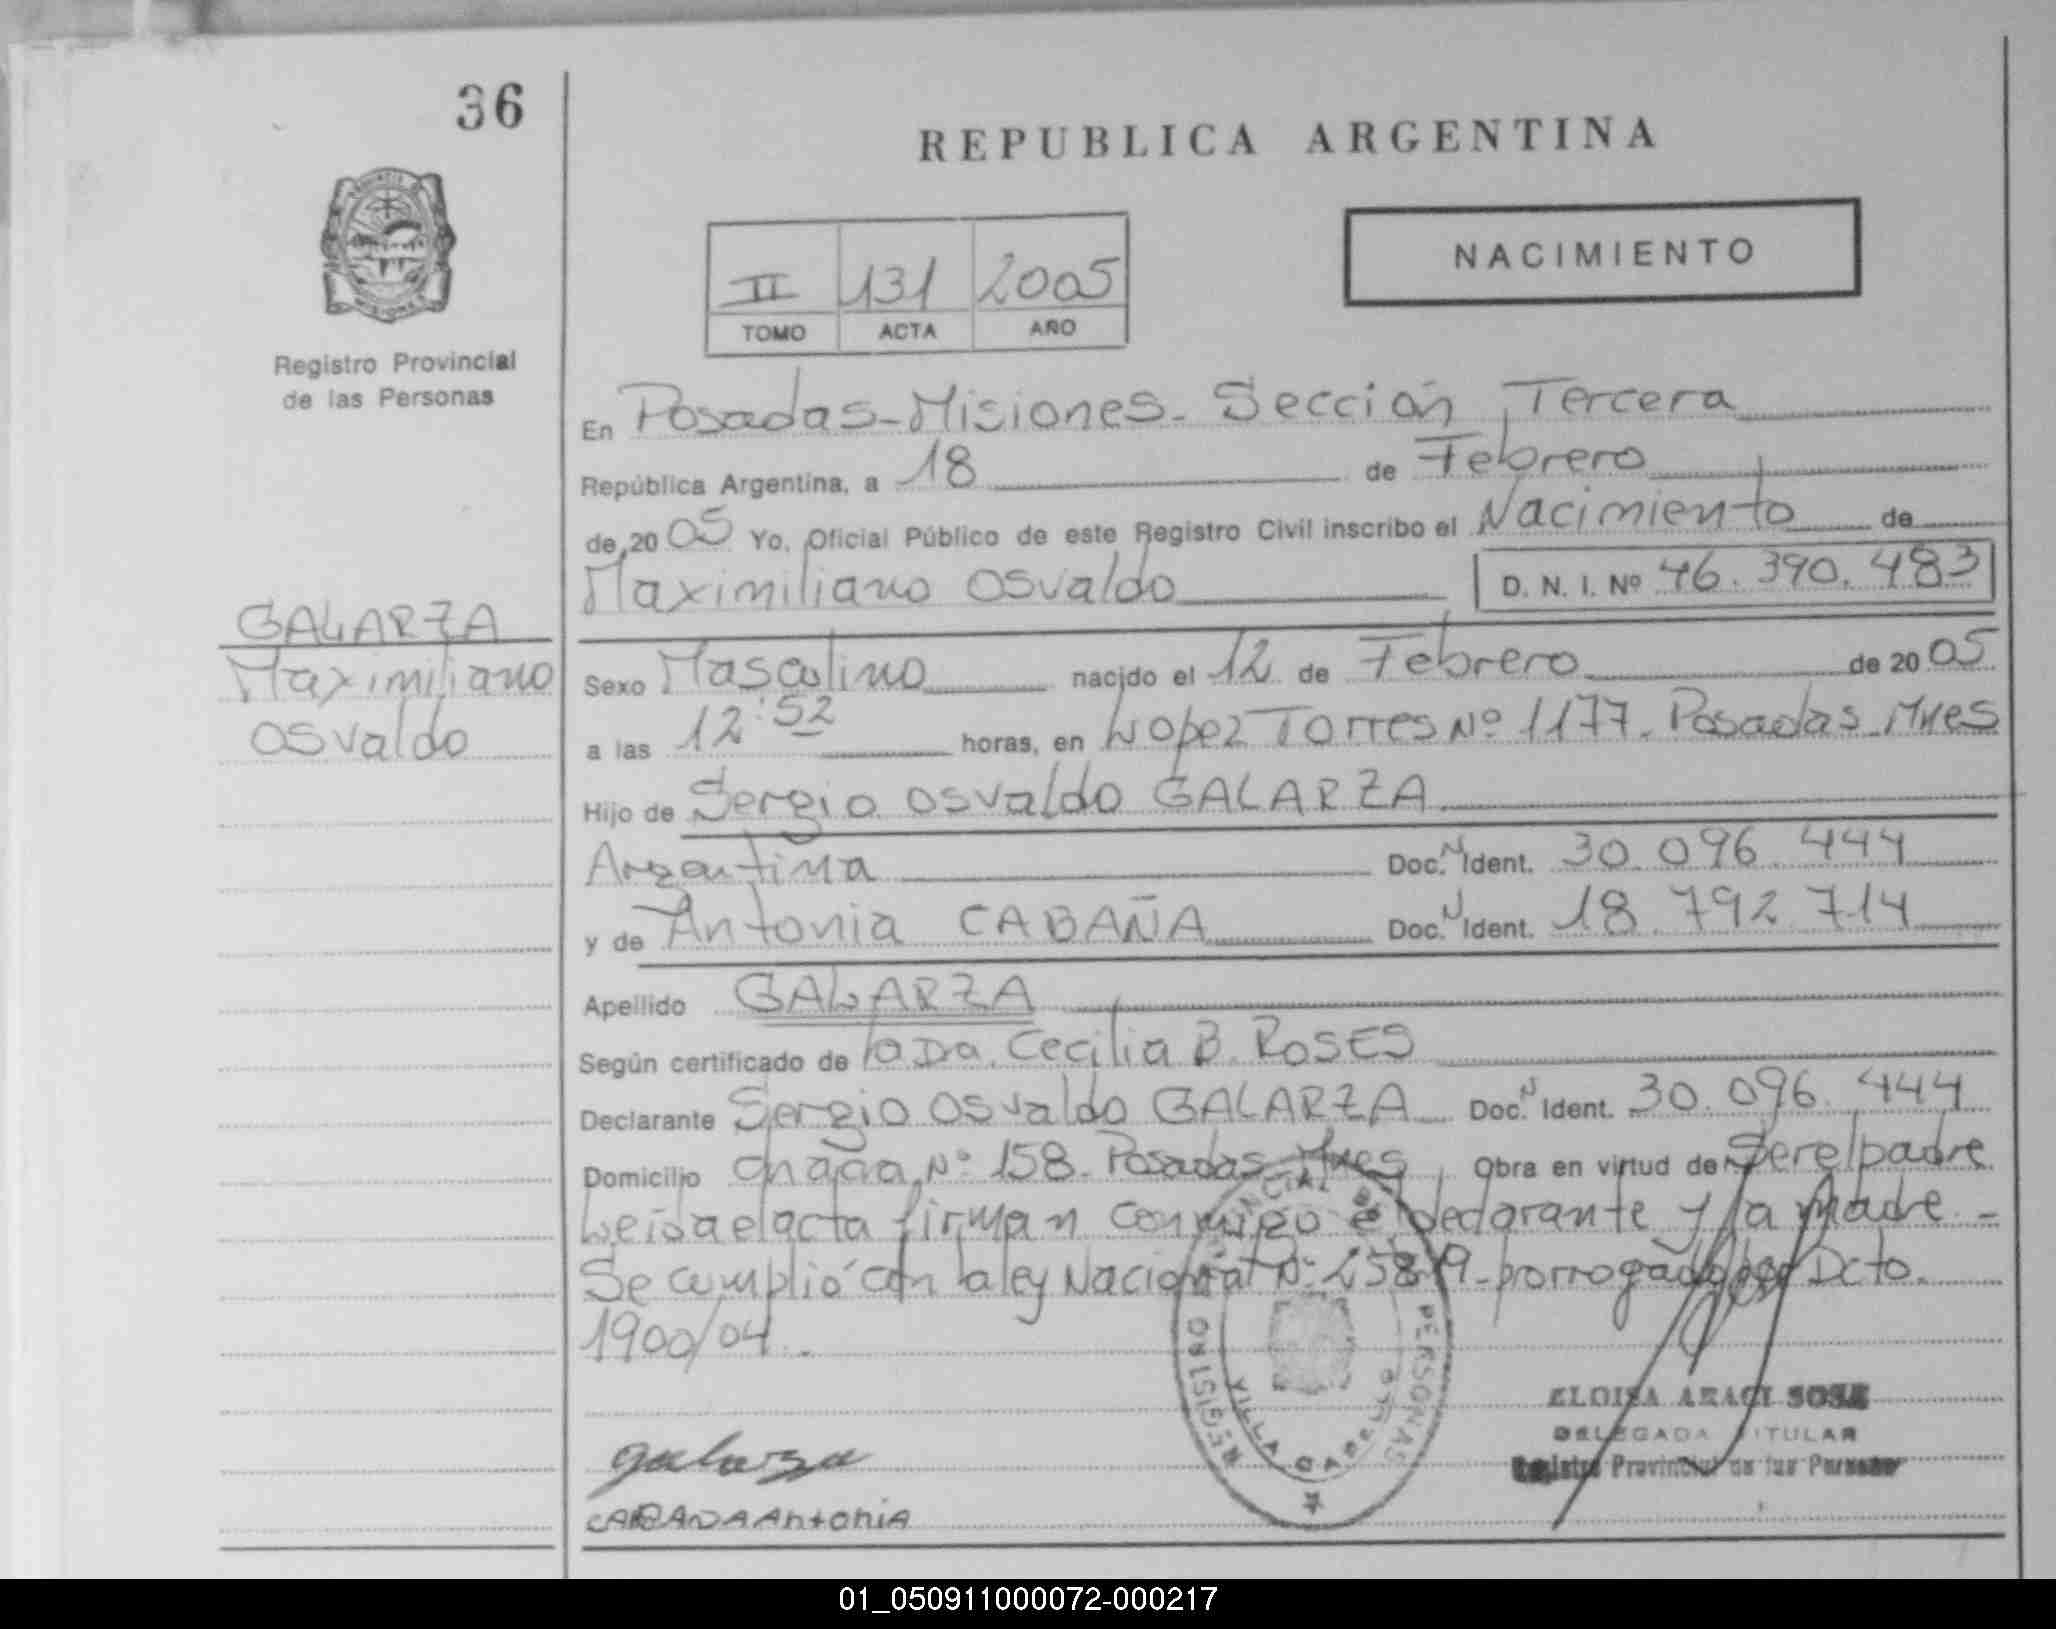 36
REPUBLICA ARGENTINA
NACIMIENTO
II 131 2005
TOMO ACTA AÑO
Registro Provincial
de las Personas
En Posadas-Misiones- Sección Tercera
República Argentina, a 18 de Febrero
de 2005 Yo, Oficial Público de este Registro Civil inscribo el Nacimiento de
Maximiliano Osvaldo D. N. I. Nº 46.390.483
GALARZA
Maximiliano
Osvaldo
Sexo Masculino nacido el 12 de Febrero de 2005
a las 12:52 horas, en Lopez Torres Nº 1177. Posadas-Mnes
Hijo de Sergio Osvaldo GALARZA
Argentina Doc. N Ident. 30.096.444
y de Antonia CABAÑA Doc. N Ident. 18.792.714
Apellido GALARZA
Según certificado de la Dra. Cecilia B. ROSES
Declarante Sergio Osvaldo GALARZA Doc. N Ident. 30.096.444
Domicilio Chacra Nº 158. Posadas Mnes Obra en virtud de Ser el padre
Leida el acta firman conmigo el declarante y la madre -
Se cumplió con la ley Nacional Nº 25819-prorrogado por Dcto.
1900/04.
REGISTRO PROVINCIAL DE PERSONAS
VILLA CABELLO
ELOISA ARACI SOSA
DELEGADA TITULAR
Registro Provincial de las Personas
galarza
CABAÑA Antonia
01_050911000072-000217